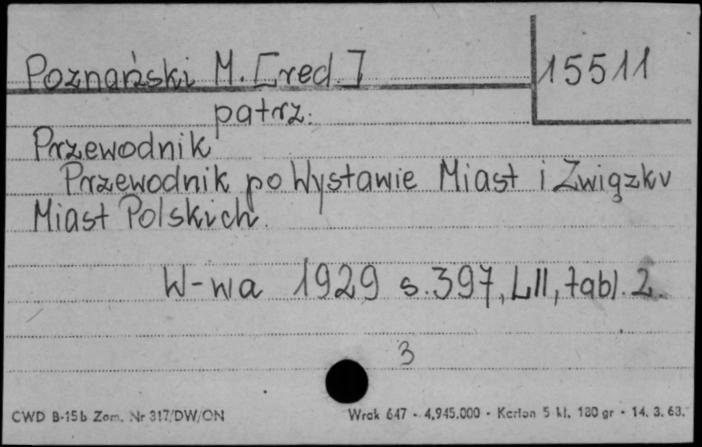 Poznański M. [red.] 15511
patrz:
Przewodnik
Przewodnik po Wystawie Miast i Związku
Miast Polskich.
W-wa 1929 s. 397, LII, tabl. 2.
3
CWD B-15b Zam. Nr 317/DW/ON Wrak 647 - 4.945.000 - Karton 5 kl. 180 gr - 14. 3. 63.